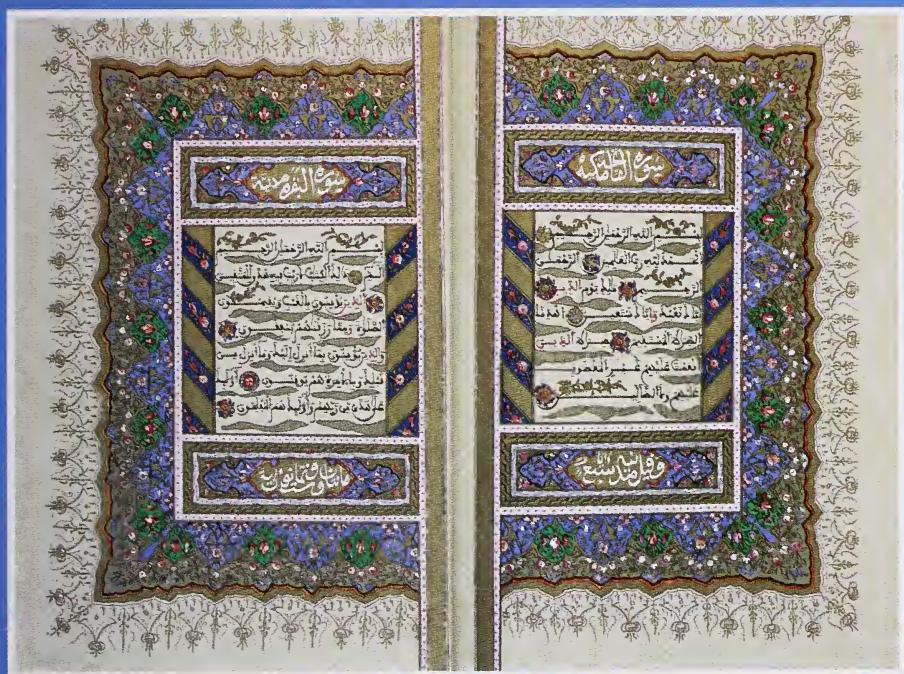 سورة الفاتحة مكية
بسم الله الرحمن الرحيم
الحمد لله رب العالمين الرحمن
الرحيم ملك يوم الدين
إياك نعبد وإياك نستعين اهدنا
الصراط المستقيم صراط الذين
أنعمت عليهم غير المغضوب
عليهم ولا الضالين
وقيل مدنية سبع
سورة البقرة مدنية
بسم الله الرحمن الرحيم
الم ذلك الكتب لا ريب فيه هدى للمتقين
الذين يؤمنون بالغيب ويقيمون
الصلوة ومما رزقنهم ينفقون
والذين يؤمنون بما أنزل إليك وما أنزل من
قبلك وبالأخرة هم يوقنون أولئك
على هدى من ربهم وأولئك هم المفلحون